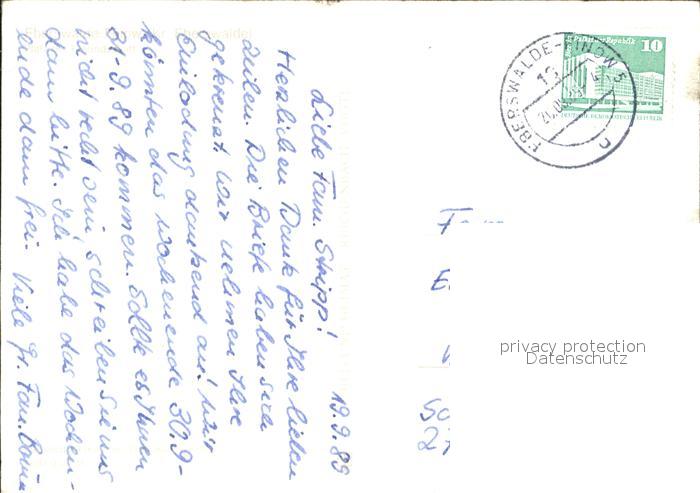 19.9.89
Liebe Fam. Stripp!
Herzlichen Dank für Ihre lieben
Zeilen. Die Briefe haben sich
gekreuzt. Wir nehmen Ihre
Einladung dankend an! Wir
könnten das Wochenende 30.9-
31.9.89 kommen. Sollte es Ihnen
nicht recht sein schreiben Sie uns
dann bitte. Ich habe das Wochen-
ende dann frei. Viele Gr. Fam.
EBERSWALDE-FINOW 5
13
10
DEUTSCHE DEMOKRATISCHE REPUBLIK
F
E.
50
privacy protection
Datenschutz